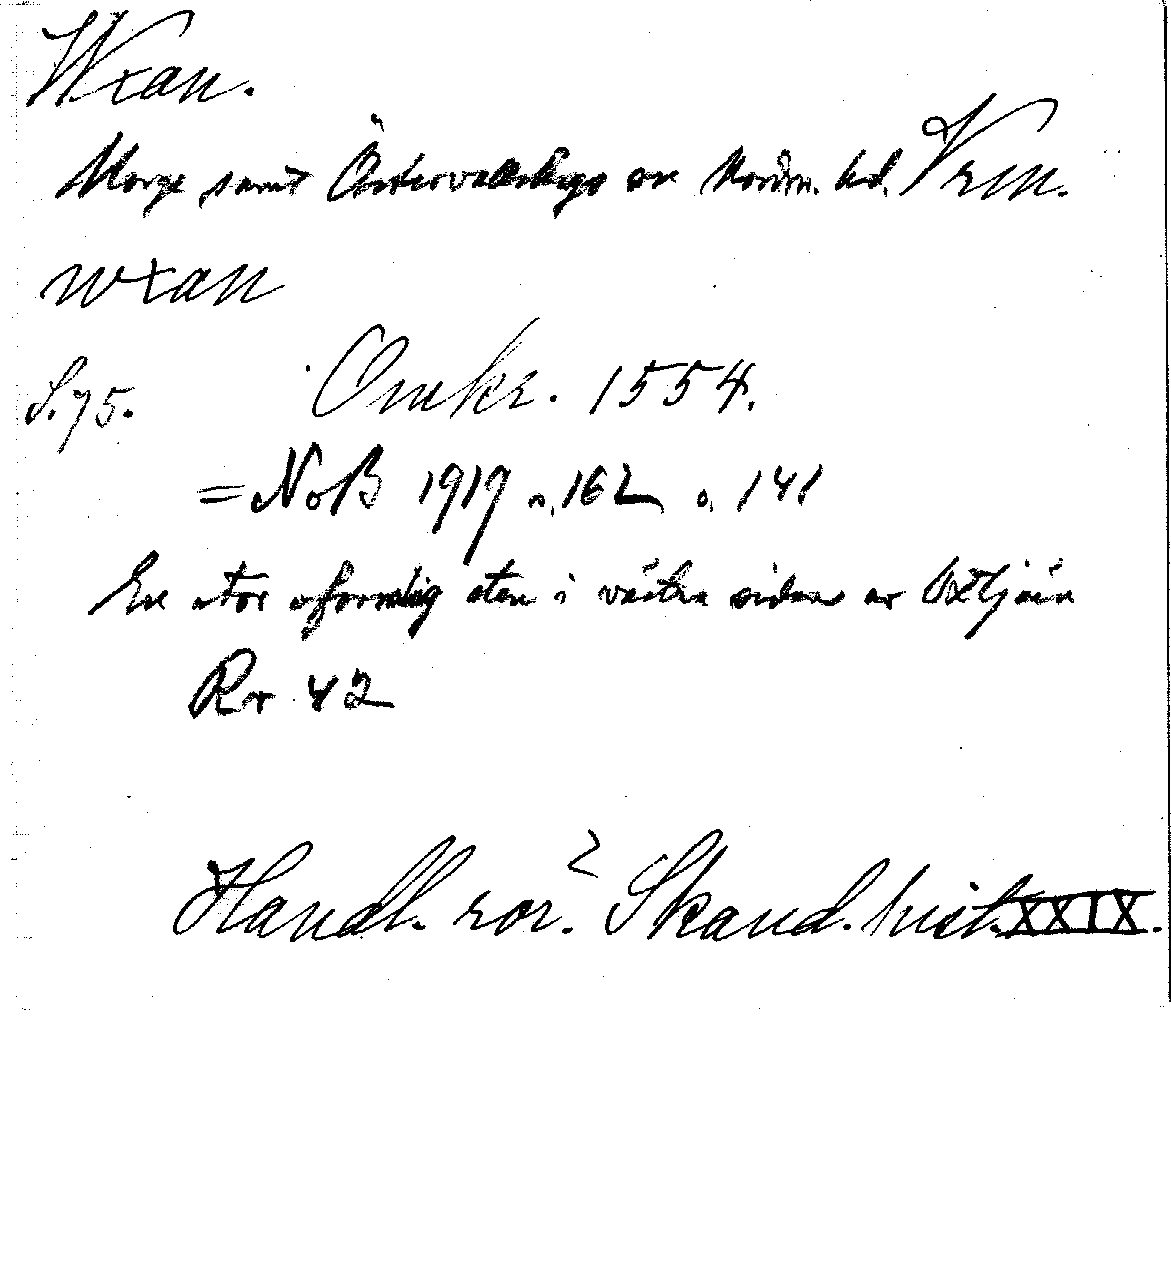 Wxan.
Norge samt Östervallskogs sn Nordm. hd. Vrm.
wxan
S. 75. Omkr. 1554.
= NoB 1919 s. 162 o. 141
En stor oformlig sten i västra sidan av Oxtjärn
Ror 42
Handl. rör. Skand. hist. XXIX.